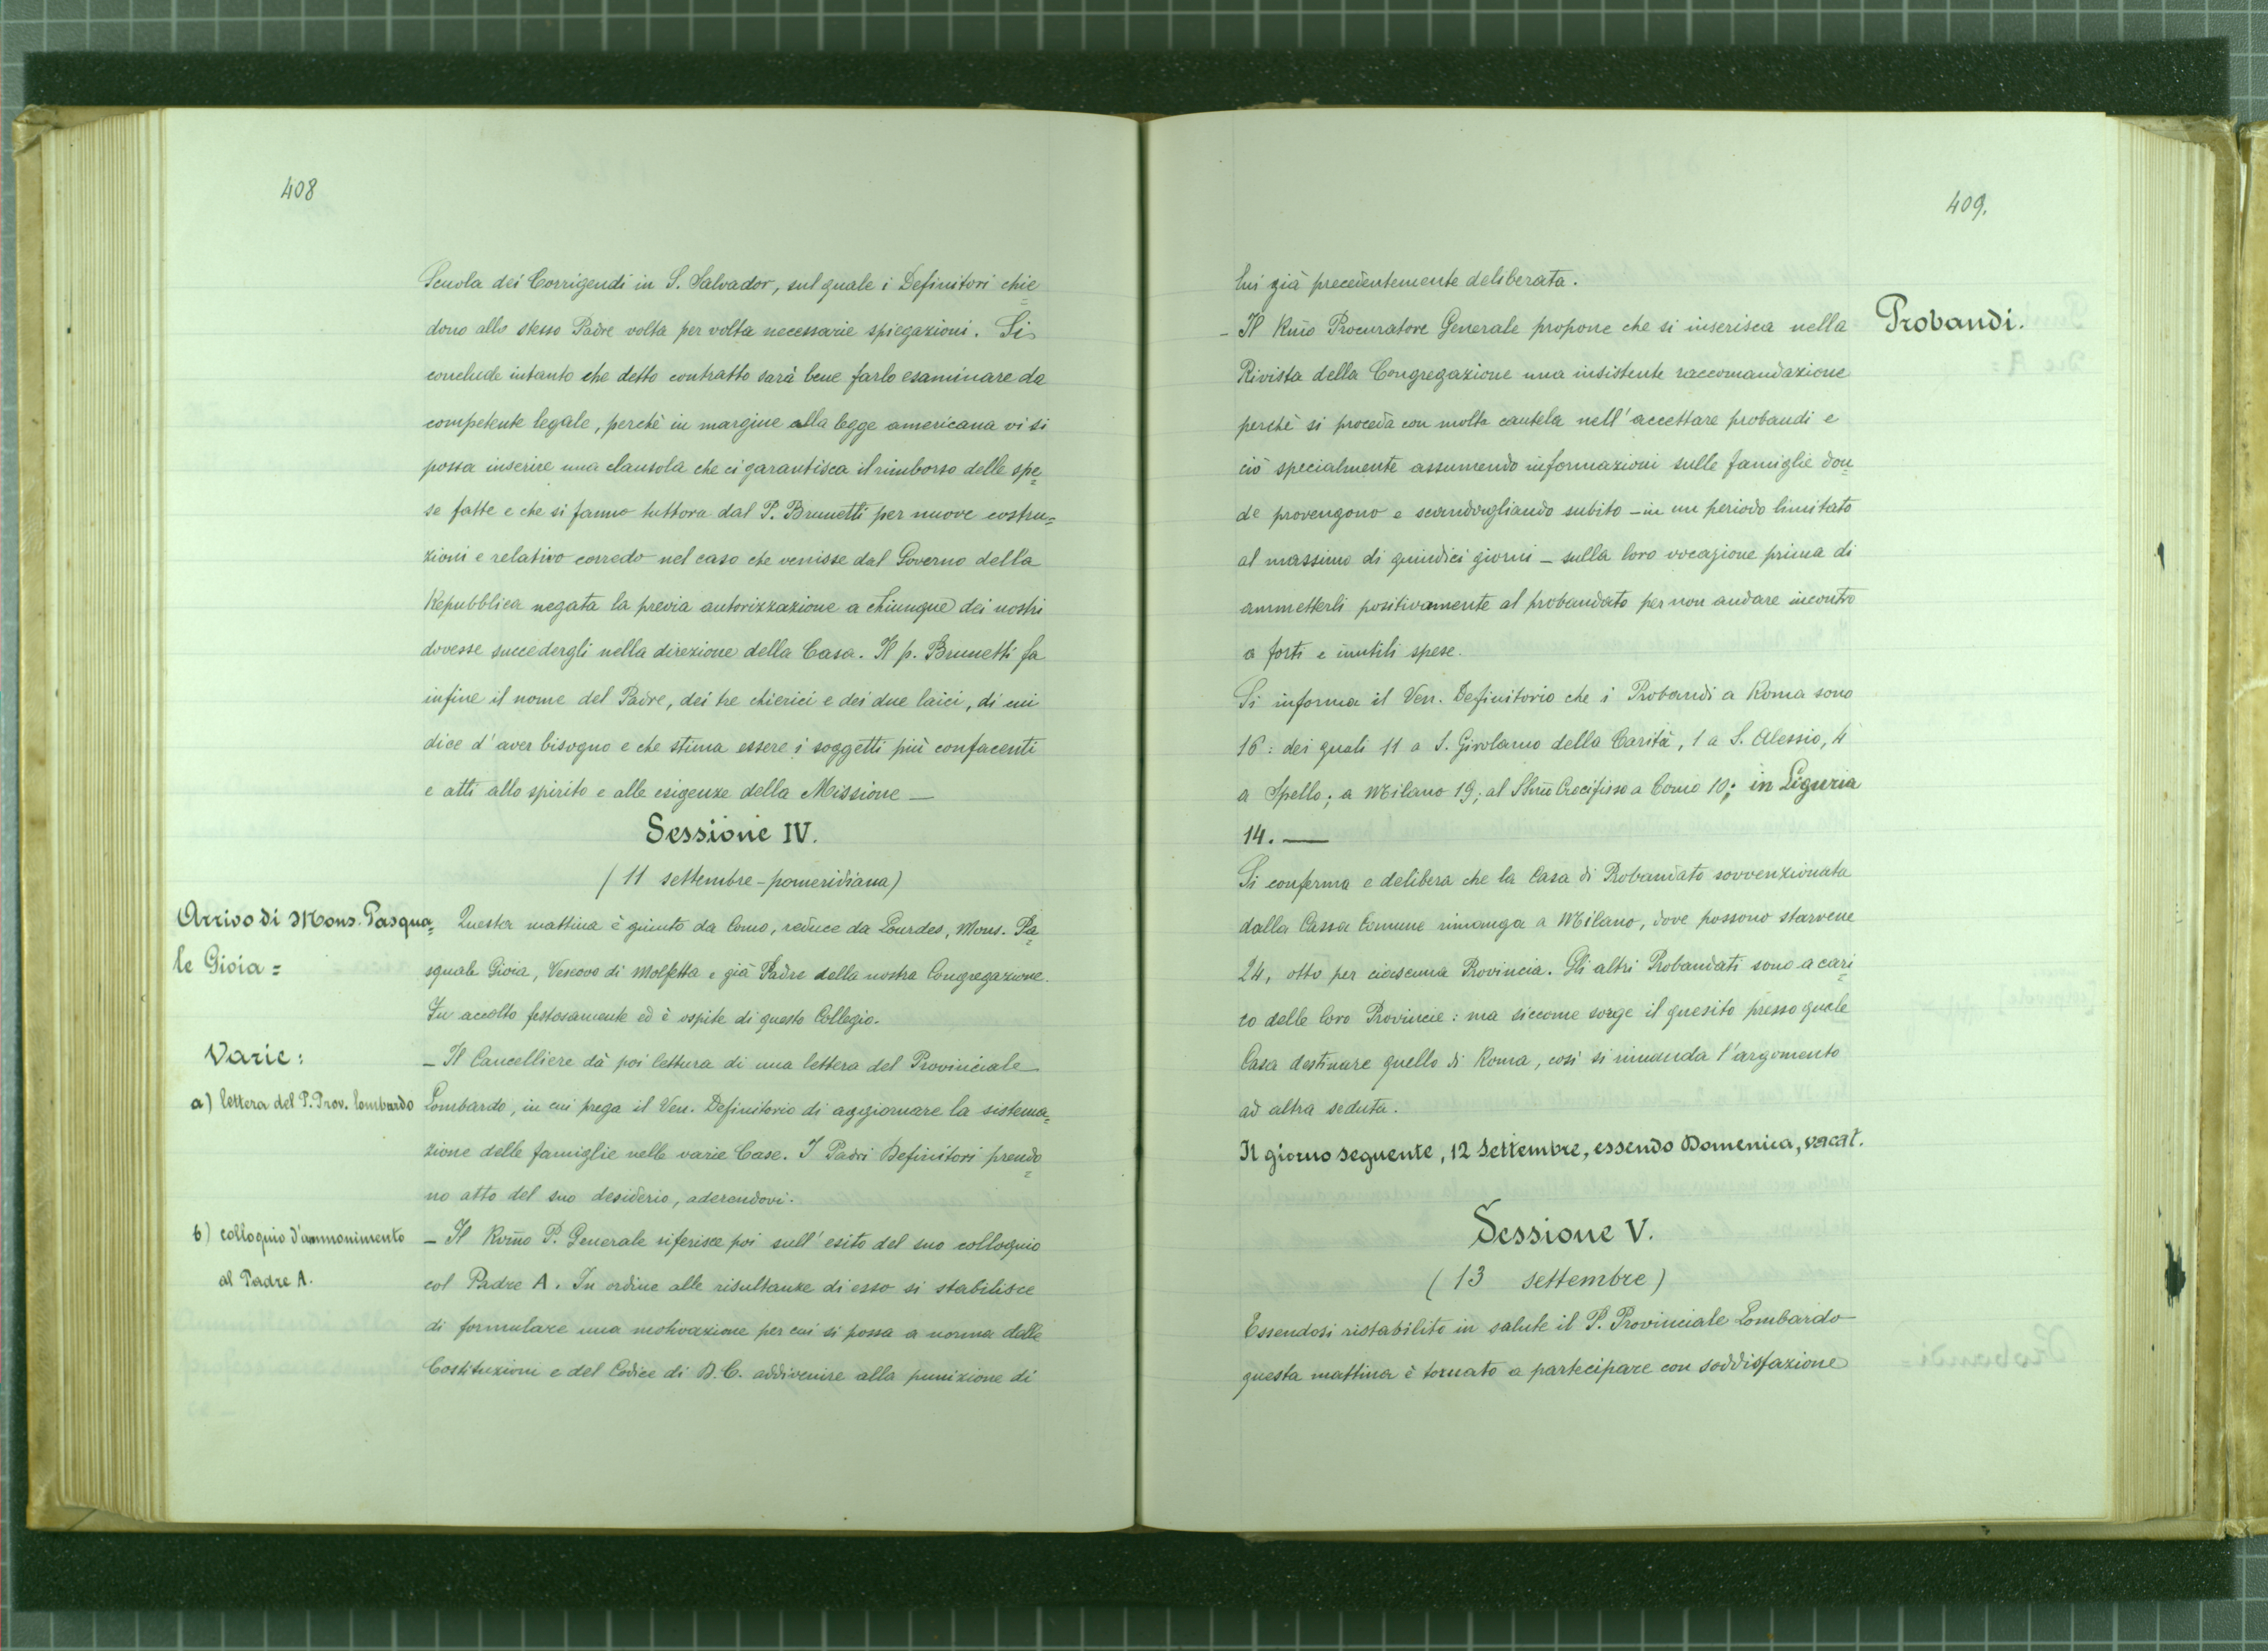 408
Scuola dei Corrigendi in S. Salvador, sul quale i Definitori chie=
dono allo stesso Padre volta per volta necessarie spiegazioni. Si
conclude intanto che detto contratto sarà bene farlo esaminare da
competente legale, perchè in margine alla legge americana vi si
possa inserire una clausola che ci garantisca il rimborso delle spe=
se fatte e che si fanno tuttora dal P. Brunetti per nuove costru=
zioni e relativo corredo nel caso che venisse dal Governo della
Repubblica negata la previa autorizzazione a chiunque dei nostri
dovesse succedergli nella direzione della Casa. Il p. Brunetti fa
infine il nome del Padre, dei tre chierici e dei due laici, di cui
dice d'aver bisogno e che stima essere i soggetti più confacenti
e atti allo spirito e alle esigenze della Missione —
Sessione IV.
(11 settembre - pomeridiana)
Arrivo di Mons. Pasqua=
le Gioia =
Questa mattina è giunto da Como, reduce da Lourdes, Mons. Pa=
squale Gioia, Vescovo di Molfetta e già Padre della nostra Congregazione.
Fu accolto festosamente ed è ospite di questo Collegio.
Varie:
a) lettera del P. Prov. lombardo
— Il Cancelliere dà poi lettura di una lettera del Provinciale
Lombardo, in cui prega il Ven. Definitorio di aggiornare la sistema=
zione delle famiglie nelle varie Case. I Padri Definitori prendo=
no atto del suo desiderio, aderendovi.
b) colloquio d'ammonimento
al Padre A.
— Il Rvm̃o P. Generale riferisce poi sull'esito del suo colloquio
col Padre A. In ordine alle risultanze di esso si stabilisce
di formulare una motivazione per cui si possa a norma delle
Costituzioni e del Codice di D. C. addivenire alla punizione di
409.
lui già precedentemente deliberata.
Probandi.
— Il Rm̃o Procuratore Generale propone che si inserisca nella
Rivista della Congregazione una insistente raccomandazione
perchè si proceda con molta cautela nell'accettare probandi e
ciò specialmente assumendo informazioni sulle famiglie don=
de provengono e scandagliando subito — in un periodo limitato
al massimo di quindici giorni — sulla loro vocazione prima di
ammetterli positivamente al probandato per non andare incontro
a forti e inutili spese.
Si informa il Ven. Definitorio che i Probandi a Roma sono
16: dei quali 11 a S. Girolamo della Carità, 1 a S. Alessio, 4
a Spello; a Milano 19; al SSm̃o Crocifisso a Como 10; in Liguria
14. —
Si conferma e delibera che la Casa di Probandato sovvenzionata
dalla Cassa Comune rimanga a Milano, dove possono starvene
24, otto per ciascuna Provincia. Gli altri Probandati sono a cari=
co delle loro Provincie: ma siccome sorge il quesito presso quale
Casa destinare quello di Roma, così si rimanda l'argomento
ad altra seduta.
Il giorno seguente, 12 Settembre, essendo Domenica, vacat.
Sessione V.
(13 settembre)
Essendosi ristabilito in salute il P. Provinciale Lombardo
questa mattina è tornato a partecipare con soddisfazione